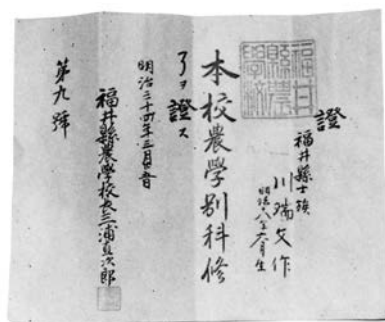 證
福井縣士族
川端文作
明治八年六月生
福井縣農學校
本校農學別科修
了ヲ證ス
明治三十四年三月廿日
福井縣農學校長三浦直次郎
第九號